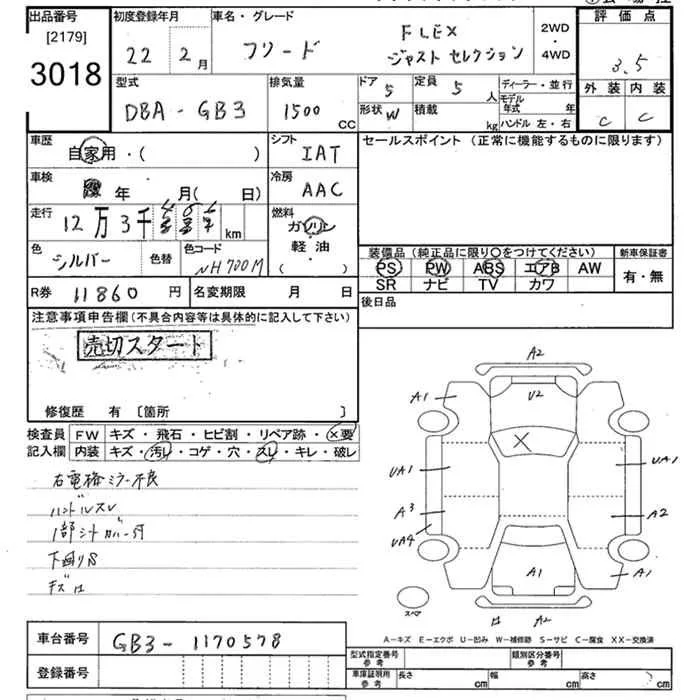 出品番号
[2179]
3018
初度登録年月
22 年 2月
車名・グレード
フリード
FLEX
ジャスト セレクション
2WD
・
4WD
評価点
3.5
外装 内装
C C
型式
DBA - GB3
排気量
1500 CC
ドア 5
定員 5 人
形状 W
積載 kg
ディーラー・並行
モデル年式 年
ハンドル 左・右
車歴
自家用・( )
シフト
IAT
セールスポイント (正常に機能するものに限ります)
車検
年 月( 日)
冷房
AAC
走行
12万3千 km
燃料
ガソリン
軽油
( )
色
シルバー
色替
色コード
NH700M
装備品 (純正品に限り○をつけてください)
PS PW ABS エアB AW
SR ナビ TV カワ
新車保証書
有・無
R券
11860 円
名変期限 月 日
後日品
注意事項申告欄(不具合内容等は具体的に記入して下さい)
売切スタート
修復歴 有 [箇所 ]
検査員
記入欄
FW キズ・飛石・ヒビ割・リペア跡・×要
内装 キズ・汚レ・コゲ・穴・スレ・キレ・破レ
右電格ミラー不良
ハンドルスレ
1部シートカバー付
下廻りS
A2
A1
U2
X
UA1
UA1
A3
A2
UA4
A1
A1
スペア
A2
A－キズ E－エクボ U－凹み W－補修跡 S－サビ C－腐食 XX－交換済
車台番号
GB3-1170578
登録番号
型式指定番号
参考
類別区分番号
参考
車庫証明用
参考
長さ cm
幅 cm
高さ cm